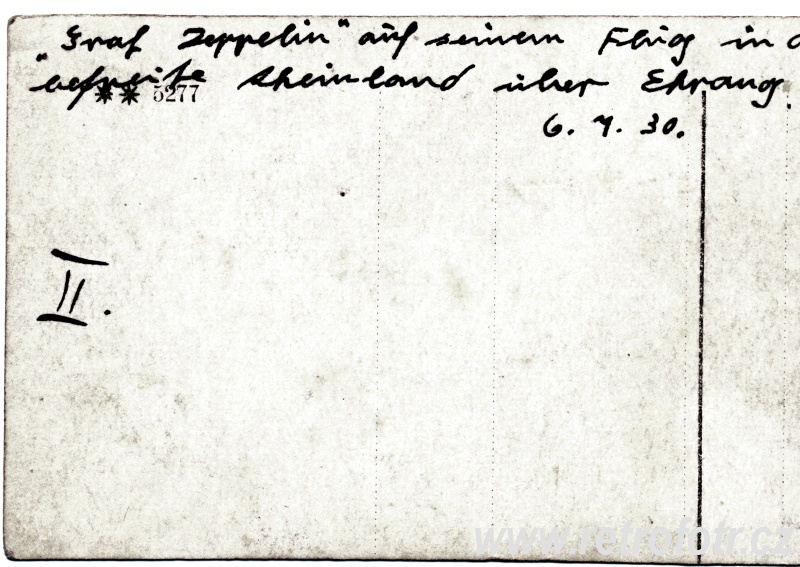 „Graf Zeppelin" auf seinem Flug in d
befreite Rheinland über Ehrang.
** 5277
6. 7. 30.
II.
www.retrofotr.cz